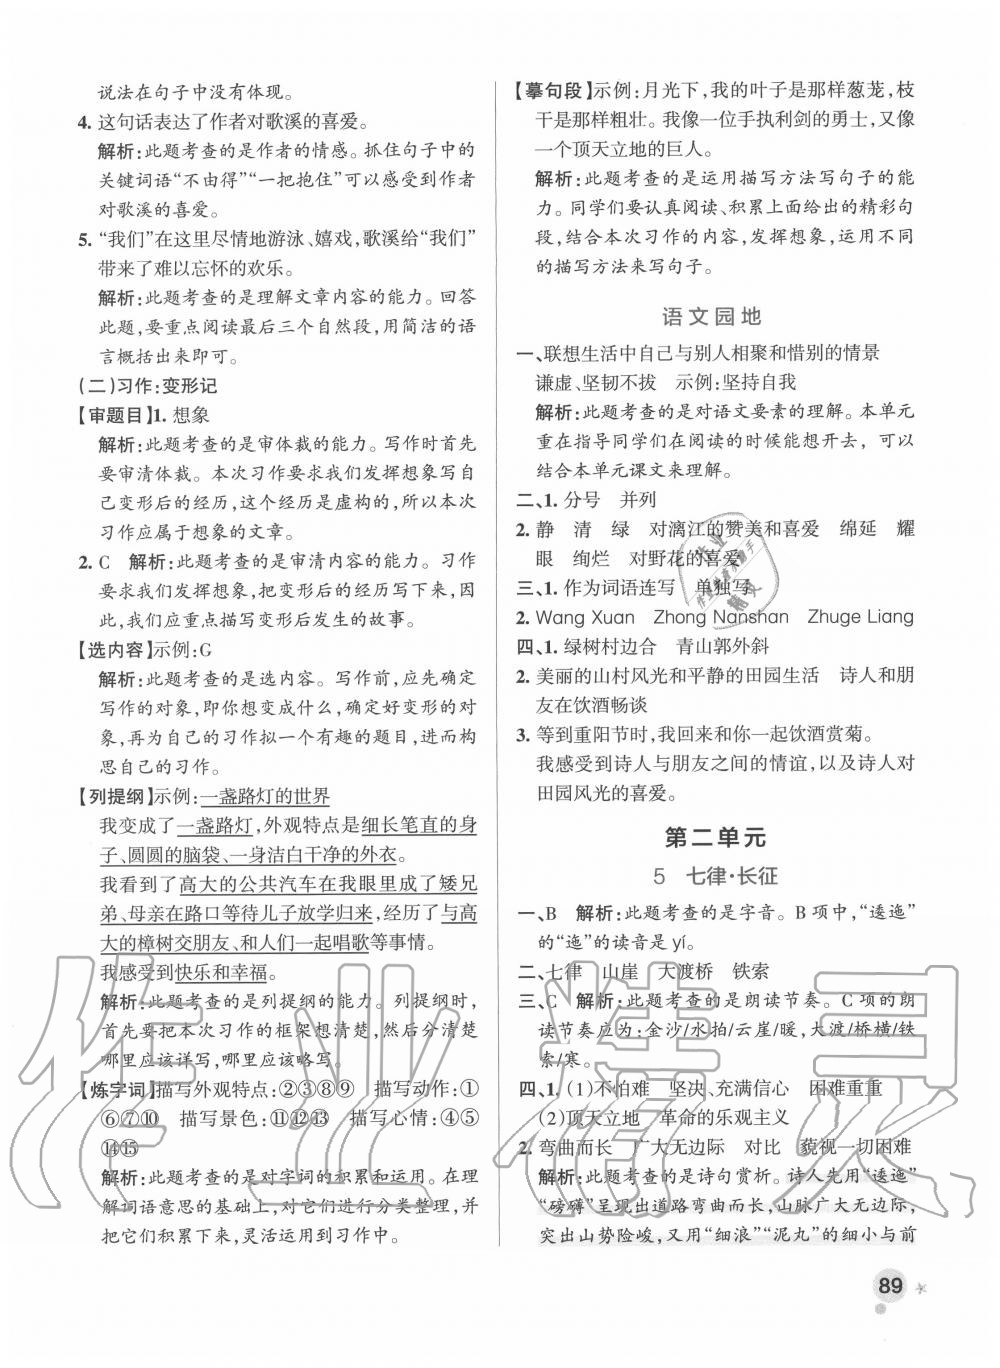 说法在句子中没有体现。
4. 这句话表达了作者对歌溪的喜爱。
解析:此题考查的是作者的情感。抓住句子中的
关键词语“不由得”“一把抱住”可以感受到作者
对歌溪的喜爱。
5. “我们”在这里尽情地游泳、嬉戏,歌溪给“我们”
带来了难以忘怀的欢乐。
解析:此题考查的是理解文章内容的能力。回答
此题,要重点阅读最后三个自然段,用简洁的语
言概括出来即可。
(二)习作:变形记
【审题目】1. 想象
解析:此题考查的是审体裁的能力。写作时首先
要审清体裁。本次习作要求我们发挥想象写自
己变形后的经历,这个经历是虚构的,所以本次
习作应属于想象的文章。
2. C 解析:此题考查的是审清内容的能力。习作
要求我们发挥想象,把变形后的经历写下来,因
此,我们应重点描写变形后发生的故事。
【选内容】示例:G
解析:此题考查的是选内容。写作前,应先确定
写作的对象,即你想变成什么,确定好变形的对
象,再为自己的习作拟一个有趣的题目,进而构
思自己的习作。
【列提纲】示例:一盏路灯的世界
我变成了一盏路灯,外观特点是细长笔直的身
子、圆圆的脑袋、一身洁白干净的外衣。
我看到了高大的公共汽车在我眼里成了矮兄
弟、母亲在路口等待儿子放学归来,经历了与高
大的樟树交朋友、和人们一起唱歌等事情。
我感受到快乐和幸福。
解析:此题考查的是列提纲的能力。列提纲时,
首先要把本次习作的框架想清楚,然后分清楚
哪里应该详写,哪里应该略写。
【炼字词】描写外观特点:②③⑧⑨ 描写动作:①
⑥⑦⑩ 描写景色:⑪⑫⑬ 描写心情:④⑤
⑭⑮
解析:此题考查的是对字词的积累和运用。在理
解词语意思的基础上,对它们进行分类整理,并
把它们积累下来,灵活运用到习作中。
【摹句段】示例:月光下,我的叶子是那样葱茏,枝
干是那样粗壮。我像一位手执利剑的勇士,又像
一个顶天立地的巨人。
解析:此题考查的是运用描写方法写句子的能
力。同学们要认真阅读、积累上面给出的精彩句
段,结合本次习作的内容,发挥想象,运用不同
的描写方法来写句子。
语文园地
一、联想生活中自己与别人相聚和惜别的情景
谦虚、坚韧不拔 示例:坚持自我
解析:此题考查的是对语文要素的理解。本单元
重在指导同学们在阅读的时候能想开去,可以
结合本单元课文来理解。
二、1. 分号 并列
2. 静 清 绿 对漓江的赞美和喜爱 绵延 耀
眼 绚烂 对野花的喜爱
三、1. 作为词语连写 单独写
2. Wang Xuan Zhong Nanshan Zhuge Liang
四、1. 绿树村边合 青山郭外斜
2. 美丽的山村风光和平静的田园生活 诗人和朋
友在饮酒畅谈
3. 等到重阳节时,我回来和你一起饮酒赏菊。
我感受到诗人与朋友之间的情谊,以及诗人对
田园风光的喜爱。
第二单元
5 七律·长征
一、B 解析:此题考查的是字音。B 项中,“逶迤”
的“迤”的读音是 yí。
二、七律 山崖 大渡桥 铁索
三、C 解析:此题考查的是朗读节奏。C 项的朗
读节奏应为:金沙/水拍/云崖/暖,大渡/桥横/铁
索/寒。
四、1. (1)不怕难 坚决、充满信心 困难重重
(2)顶天立地 革命的乐观主义
2. 弯曲而长 广大无边际 对比 藐视一切困难
解析:此题考查的是诗句赏析。诗人先用“逶迤”
“磅礴”呈现出道路弯曲而长,山脉广大无边际,
突出山势险峻,又用“细浪”“泥丸”的细小与前
89
作业精灵